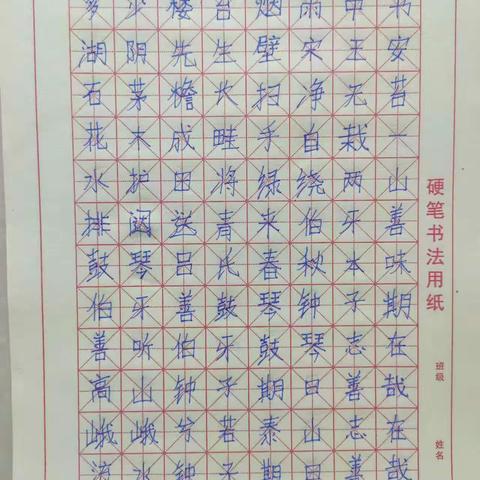 多少楼台烟雨中书
湖阴先生壁宋王安
石茅檐长扫净无苔
花木成畦手自栽一
水护田将绿绕两山
排闼送青来伯牙善
鼓琴吕氏春秋本味
伯牙善鼓琴钟子期
善听伯牙鼓琴志在
高山钟子期曰善哉
峨峨兮若泰山志在
流水钟子期曰善哉
硬笔书法用纸
班级
姓名